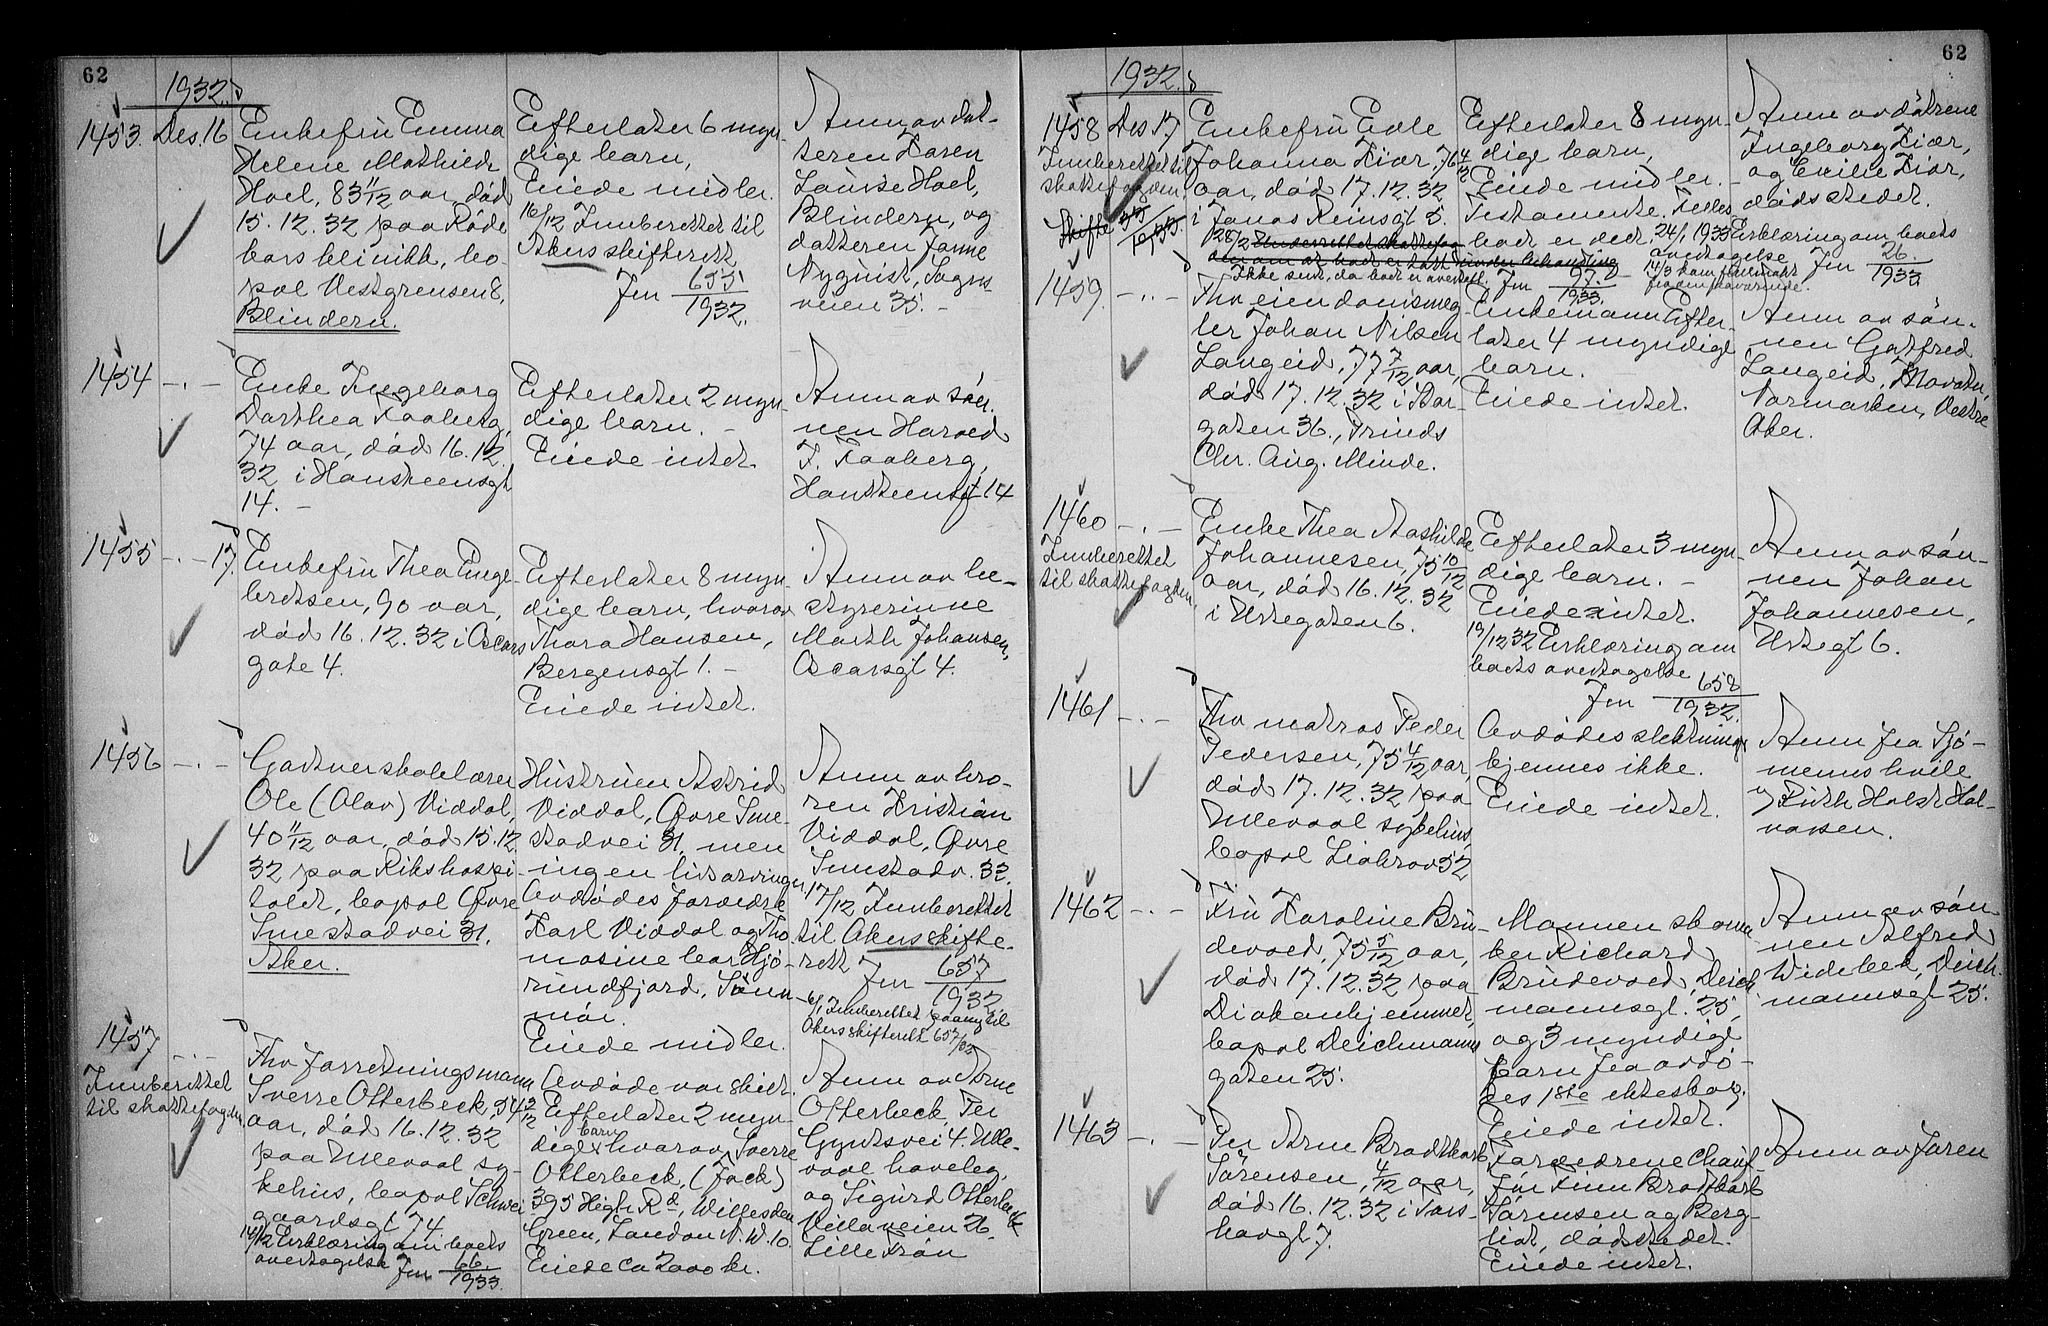 62
1932.
1453. Des. 16
Enkefru Emma
Helene Mathilde
Hoel, 83 11/12 aar, död
15.12.32 paa Röde
kors klinikk, bo-
pel Vestgrensen 8,
Blindern.
Efterlater 6 myn-
dige barn,
Eiede midler.
16/12 Innberettet til
Akers skifterett
Jnr 655/1932.
Anm av dat-
teren Karen
Lauise Hoel,
Blindern, og
datteren Janne
Nyquist, Sogns-
veien 35. -
1454 -.-
Enke Ingeborg
Dorthea Faaberg,
74 aar, död 16.12.
32 i Hansteensgt
14. -
Efterlater 2 myn-
dige barn. -
Eiede intet.
Anm av sön-
nen Harald
F. Faaberg,
Hansteensgt 14
1455 -.- 17.
Enkefru Thea Enge-
bretsen, 90 aar,
död 16.12.32 i Oscars
gate 4.
Efterlater 8 myn-
dige barn, hvorav
Thora Hansen,
Bergensgt 1. -
Eiede intet.
Anm av be-
styrerinne
Marth Johansen,
Oscarsgt 4.
1456 -.-
Gartnerskolelærer
Ole (Olav) Viddal,
40 11/12 aar, död 15.12.
32 paa Rikshospi-
talet, bopel Øvre
Smestadvei 31.
Aker.
Hustruen Astrid
Viddal, Øvre Sme-
stadvei 31, men
ingen livsarvinger.
Avdödes foreldre
Karl Viddal og Tho-
masine bor Hjö-
rundfjord, Sünn-
mör.
Eiede midler.
Anm av bro-
ren Kristian
Viddal, Øvre
Smestadv. 33.
17/12 Innberettet
til Akers skifte-
rett Jnr 657/1932
6/1 Innberettet paany til
Akers skifterett 657/32
1457 -.-
Innberettet
til skattefogden
Fhv forretningsmann
Sverre Otterbeck, 54 2/12
aar, död 16.12.32
paa Ullevaal sy-
kehus, bopel Schwei
gaardsgt 74.
19/12 Erklæring om boets
overtagelse Jnr 66/1933.
Avdöde var skilt.
Efterlater 2 myn-
dige barn hvorav Sverre
Otterbeck, (Jack)
395 High Rd, Willesden
Green, London N.W.10.
Eiede ca 2000 kr.
Anm av Arne
Otterbeck, Per
Gyntsvei 4. Ulle-
vaal haveby,
og Sigurd Otterbeck
Villaveien 26,
Lille Frön
62
1932.
1458 Des 17
Innberettet til
skattefogden.
Skifte
Enkefru Evle
Johanna Kiær, 76 4/12
aar, död 17.12.32
i Jonas Reinsgt 5.
28/2 Underrettet skattefog-
den om at boet er tatt under behandling
Ikke sendt, da boet er overtatt. Jnr 97/1933.
Efterlater 8 myn-
dige barn,
Eiede midler. -
Testamente. Felles-
boet er delt. 24/1 1933 Erklæring om boets
overtagelse Jnr 26/1933
14/3 kom fullmakt
fra den fraværende.
Anm av dötrene
Ingeborg Kiær,
og Emilie Kiær,
dödsstedet.
1459. -.-
Fhv eiendomsmeg-
ler Johan Nilsen
Langeid, 77 7/12 aar,
död 17.12.32 i Stor-
gaten 36., Prinds
Chr. Aug. Minde.
Enkemann Efter-
later 4 myndige
barn.
Eiede intet.
Anm av sön-
nen Gotfred
Langeid, Movatn,
Normarken, Vestre
Aker.
1460 -.-
Innberettet
til skattefogden.
Enke Thea Mathilde
Johannesen, 75 10/12
aar, död 16.12.32
i Urtegaten 6.
Efterlater 3 myn-
dige barn. -
Eiede intet.
19/12 32 Erklæring om
boets overtagelse
Jnr 658/1932.
Anm av sön-
nen Johan
Johannesen,
Urtegt 6.
1461 -.-
Fhv matros Peder
Pedersen, 75 4/12 aar,
död 17.12.32 paa
Ullevaal sykehus,
bopel Liabrov 52
Avdödes slektninger
kjennes ikke.
Eiede intet.
Anm fra Sjö-
menns hvile
v/ Ruth Holst Hal-
vorsen.
1462 -.-
Fru Karoline Bru-
devold, 75 5/12 aar,
död 17.12.32 paa
Diakonhjemmet,
bopel Deichmanns
gaten 25.
Mannen skoma-
ker Richard
Brudevold, Deich
mannsgt. 25,
og 3 myndige
barn fra avdö-
des 1ste ekteskap.
Eiede intet.
Anm av sön-
nen Alfred
Wideberk, Deich-
mannsgt 25.
1463 -.-
Per Arne Bradtkorb
Sörensen, 4/12 aar,
död 16.12.32 i Tors-
hovgt 7.
Foreldrene chauf-
för Finn Bradtkorb
Sörensen og Berg-
liot, dödsstedet.
Eiede intet.
Anm av faren